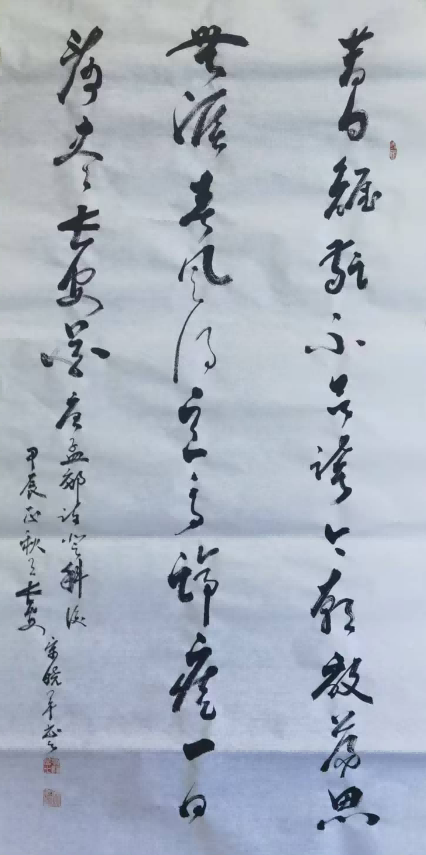 昔日齷齪不足誇今朝放蕩思
無涯春风得意马蹄疾一日
看尽长安花 唐孟郊诗登科後
甲辰正秋于长安 宋